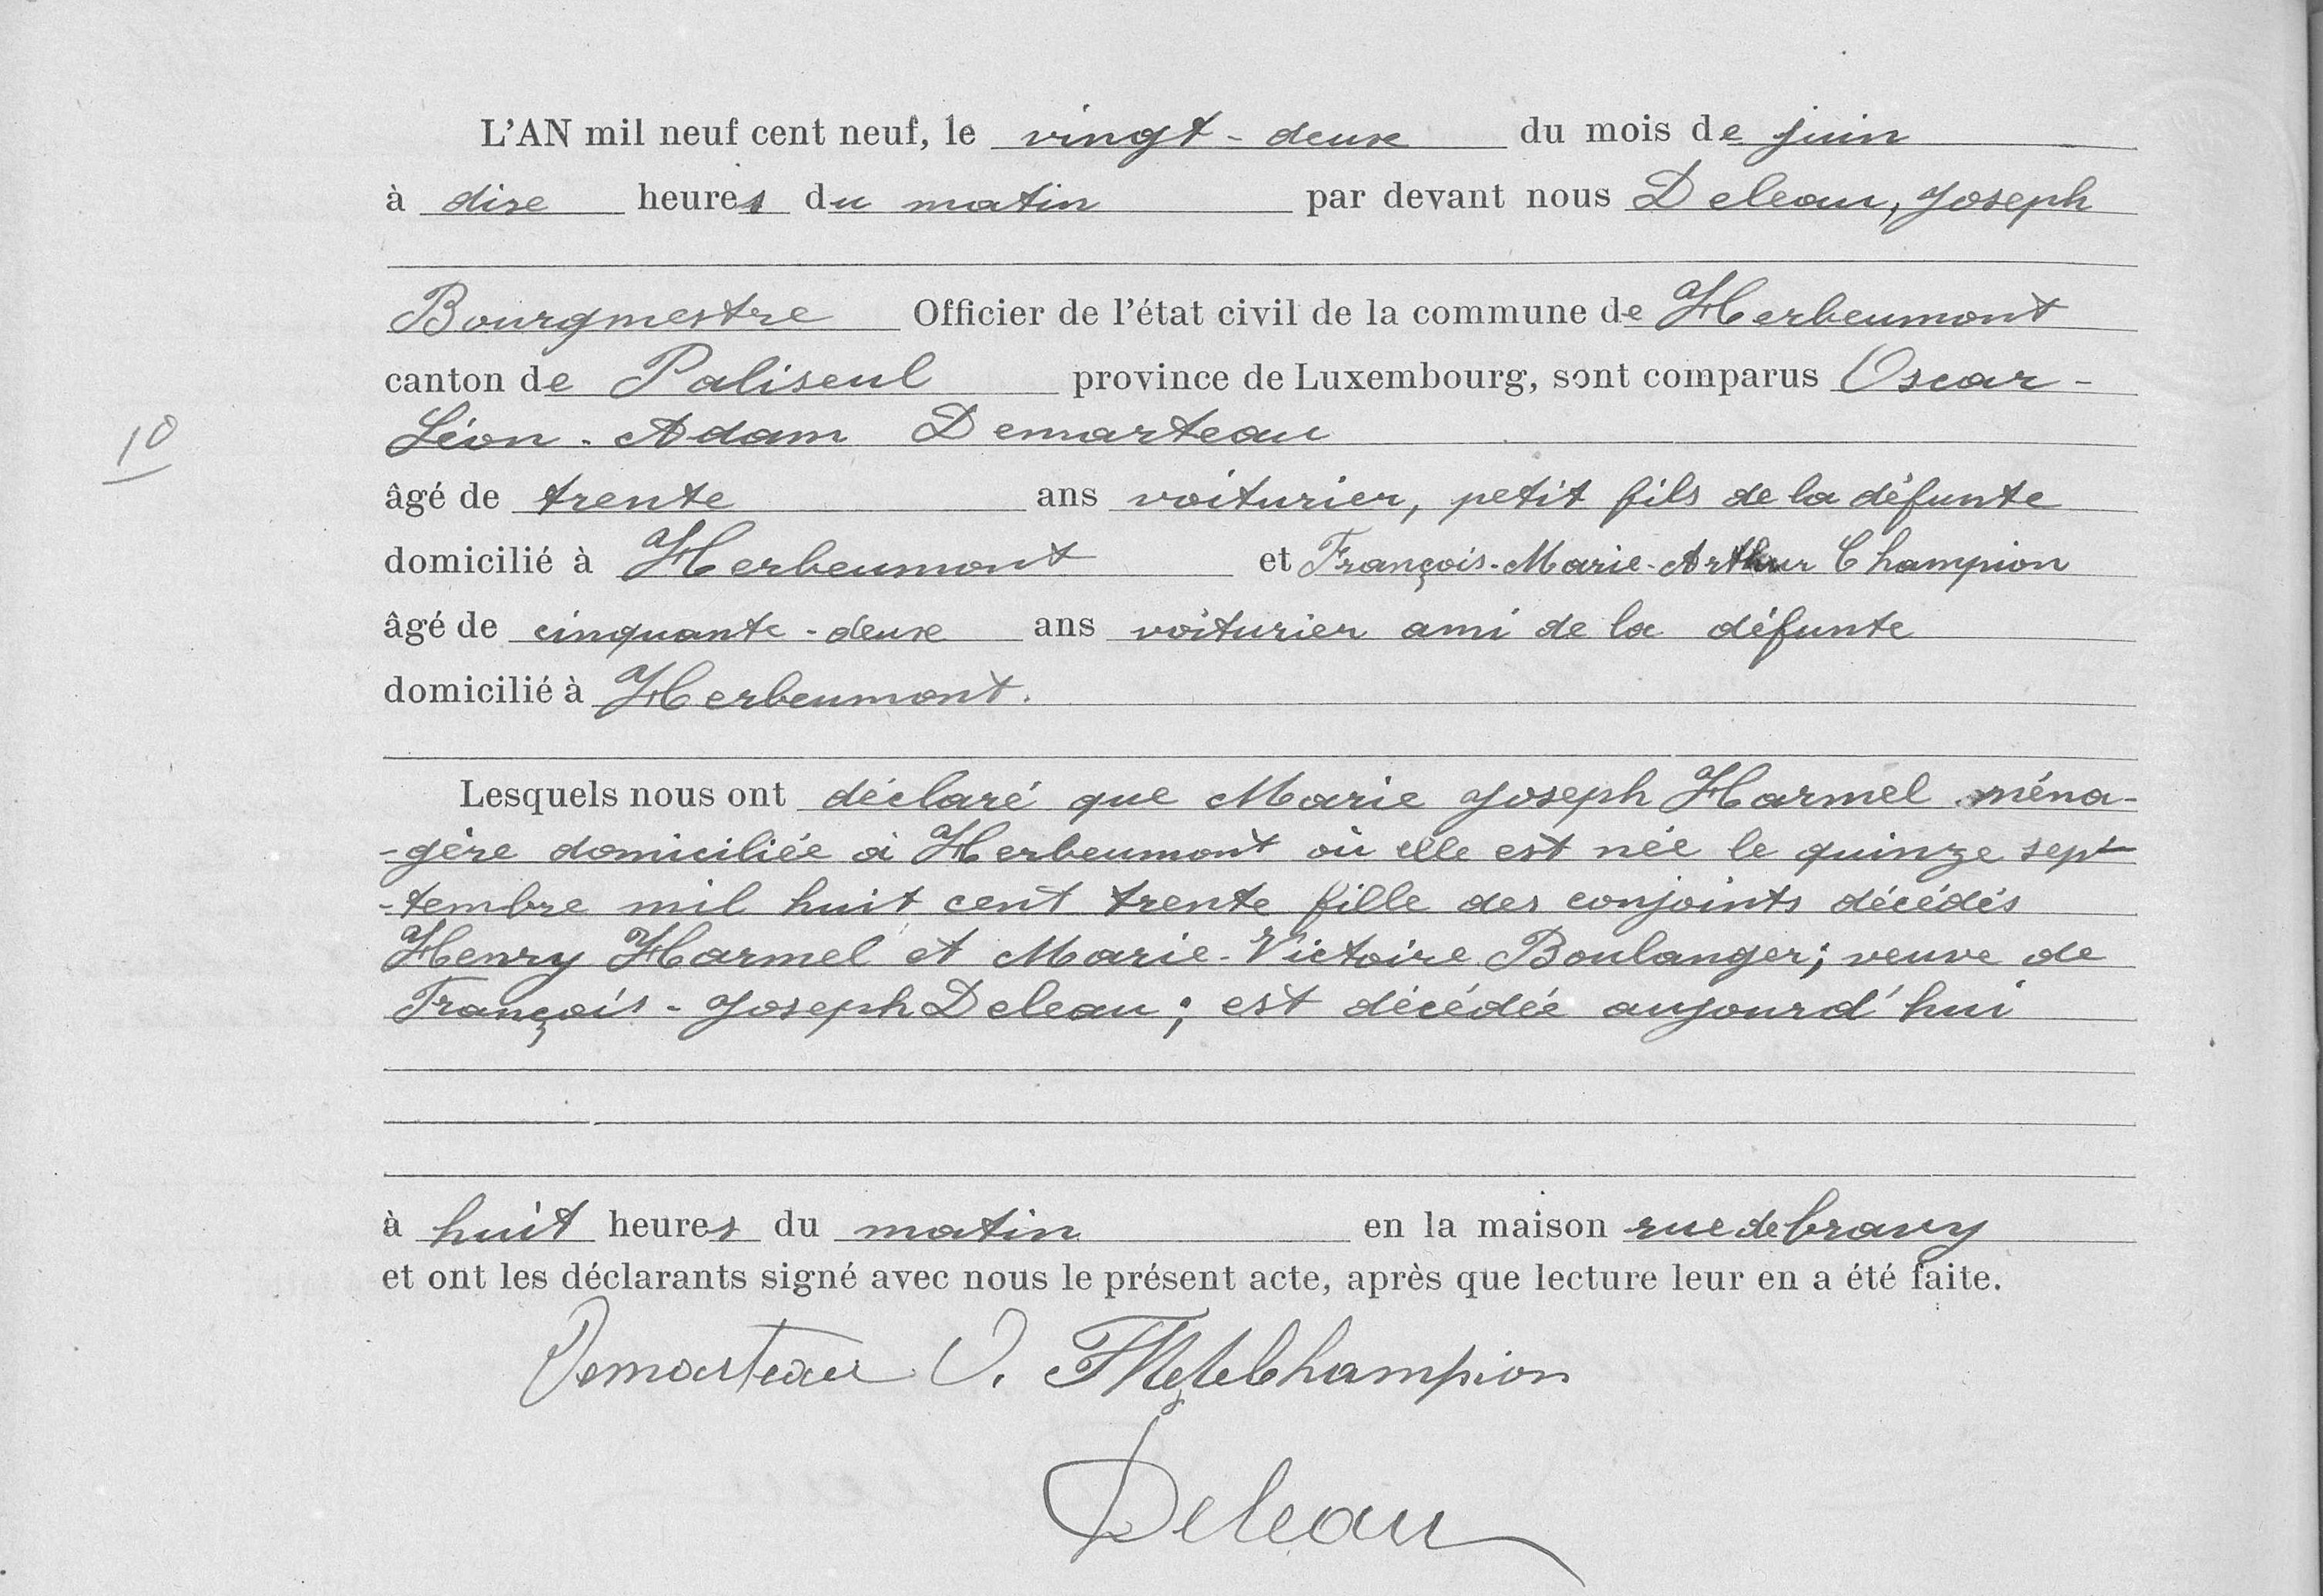 L'AN mil neuf cent neuf, le vingt-deux du mois de juin
à dix heures du matin par devant nous Deleau, Joseph
Bourgmestre Officier de l'état civil de la commune de Herbeumont
canton de Paliseul province de Luxembourg, sont comparus Oscar-
Léon-Adam Demarteau
10
âgé de trente ans voiturier, petit fils de la défunte
domicilié à Herbeumont et François-Marie-Arthur Champion
âgé de cinquante-deux ans voiturier ami de la défunte
domicilié à Herbeumont.
Lesquels nous ont déclaré que Marie Joseph Harmel ména-
-gère domiciliée à Herbeumont où elle est née le quinze sept
-tembre mil huit cent trente fille des conjoints décédés
Henry Harmel et Marie-Victoire Boulanger; veuve de
François-Joseph Deleau; est décédée aujourd'hui
à huit heures du matin en la maison rue de
et ont les déclarants signé avec nous le présent acte, après que lecture leur en a été faite.
Demarteau O. Champion
Deleau